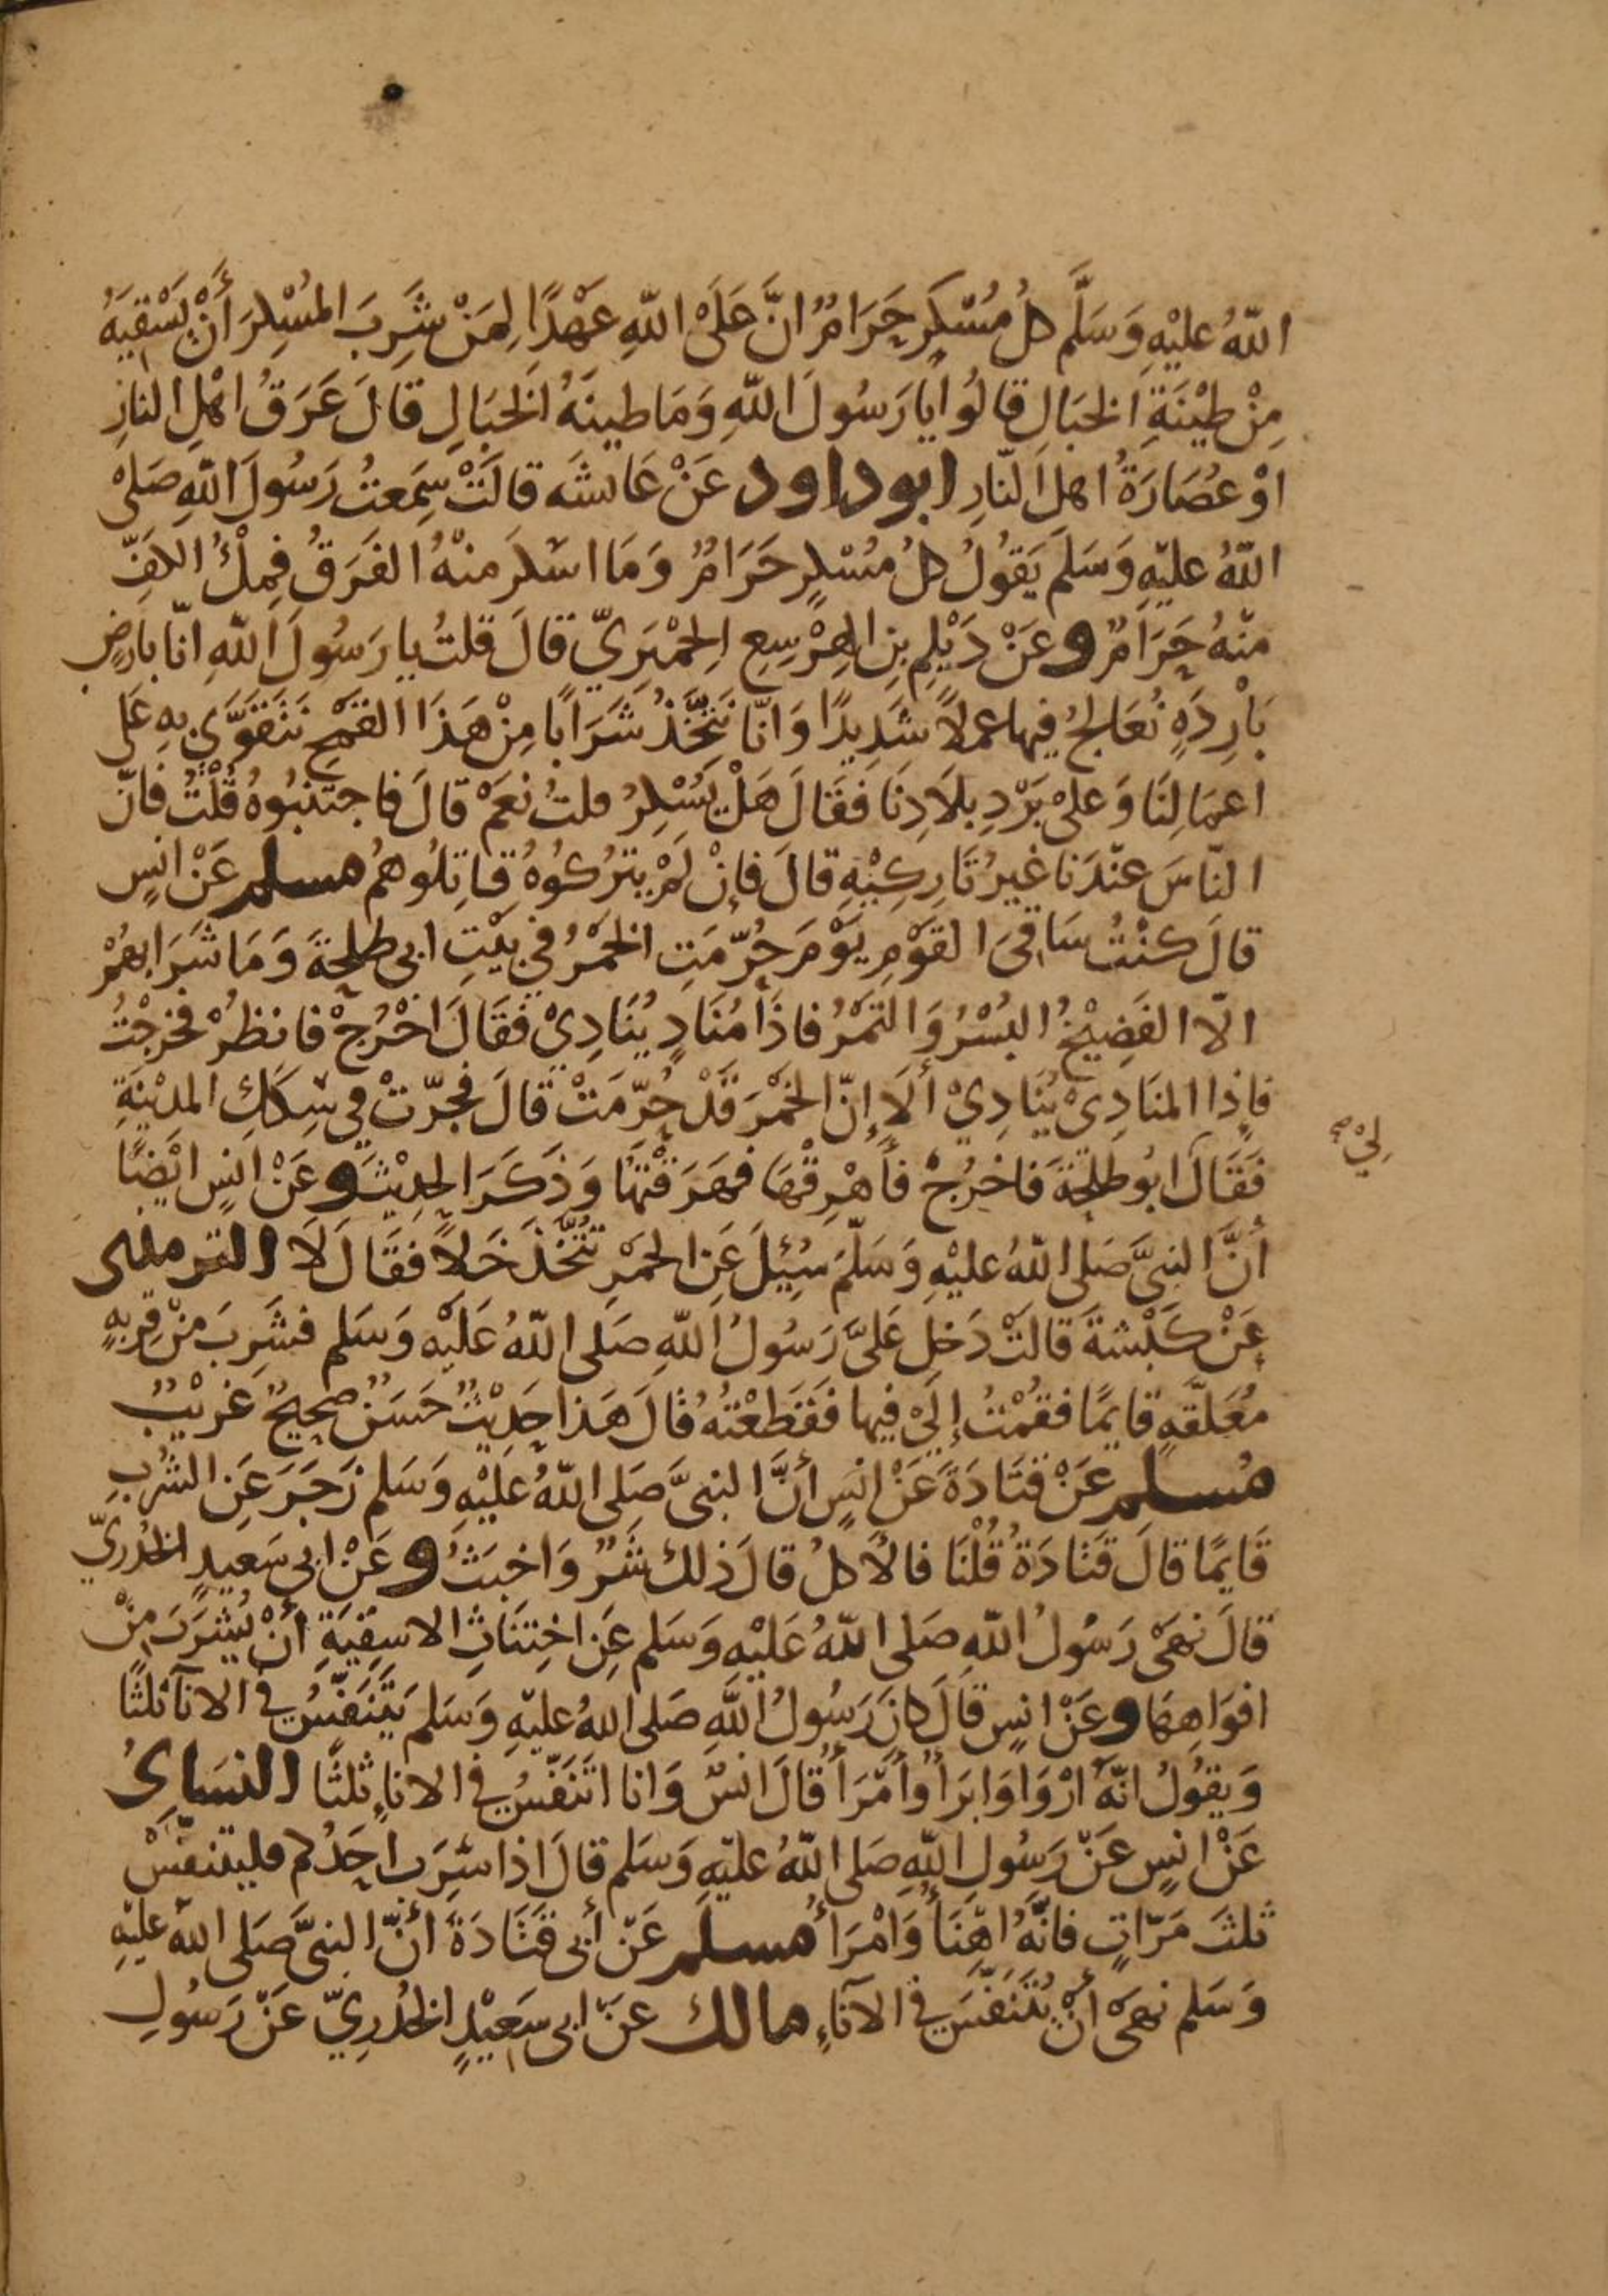 اللّهُ عليْهِ وَسَلَّم كلُ مُسْكِرٍ حَرَامٌ انَّ عَلَىْ اللّهِ عَهْدًا لِمَنْ شَرِبَ المُسْكِرَ أَنْ يَسْقِيَهُ
مِنْ طِيْنَةِ الخبَالِ قالُوا يَا رَسُولَ اللّهِ وَمَا طينَهُ الخَبَالِ قالَ عَرَقُ اهْلِ النارِ
اوْ عُصَارَةُ اهلِ النّارِ ابو داود عَنْ عَايشَه قالَتْ سِمَعتُ رَسُولَ اللّهِ صَلىْ
اللّهُ عليْهِ وَسَلَمَ يَقُولُ كلُ مُسْكِرٍ حَرَامٌ وَمَا اسْكرَ منْهُ الفَرَقُ فِملْءُ الكَفِّ
منْهُ حَرَامٌ وعَنْ دَيْلِمِ بنِ الهِرْسِعِ الِحمْيَرِيّ قالَ قلتُ يا رَسُولَ اللّهِ انّا بارضٍ
بَارِدَهٍ نُعَالجُ فيها عملاً شَدِيدًا وَانّا نَتَّخِذُ شَرَابًا مِنْ هَذَا القمْحِ نَتَقوَّى بهِ عَلى
اعمَالِنَا وَعلىْ بَرْدِ بلاَدِنَا فَقَالَ هَلْ يُسْكِرُ قلتُ نعَمْ قالَ فاجتَنبُوهُ قُلْتُ فانّ
النّاسَ عنْدَنا غيرُ تَارِكِيْهِ قالَ فإنْ لَمْ يتْرُكُوهُ قاتِلُوهُمُ مسلم عَنْ انسٍ
قالَ كنْتُ سَاقىَ القوْمِ يوْمَ حُرّمَتِ الخَمْرُ في بيْتِ ابى طلحَةَ وَمَا شَرَابهُمْ
الّا الفَضِيْخُ البُسْرُ وَالتمْرُ فاذَا مُنَادٍ يُنَادِيْ فقَالَ اخْرُجْ فانظُرْ فخرجْتُ
فإذا المنَادِىْ يُنَادِيْ ألَا إِنّ الخمْرَ قَدْ حُرّمَتْ قالَ فجرّتْ في سِكَكِ المدِيْنَةِ
لِىْ صح
فَقَالَ ابُو طلحَةَ فاخرُجْ فأَهْرِقْهَا فهَرَقْتهَا وَذَكَرَ الحدِيْثَ وعَنْ انسٍ ايْضًا
أنَّ النبىَّ صَلى اللّهُ عليْهِ وَسَلّمَ سُئِلَ عَنِ الخمْرِ تُتَّخَذُ خَلاًّ فقَالَ لَا الترمذى
عَنْ كَبْشةَ قالتْ دَخلَ عَلىَّ رَسُولُ اللّهِ صَلى اللّهُ عَليْهِ وَسَلم فشَرِبَ منْ قِربهٍ
مُعَلقّهٍ قايمًا فقُمْتُ إِلَىْ فيها فقَطَعْتهُ قالَ هَذا حَدِيْثٌ حَسَنٌ صحِيحٌ غرِيْبٌ
مُسلم عَنْ قتَادَةَ عَنْ انسٍ أنَّ النبىَّ صَلى اللّهُ عليْهِ وَسَلم زَجَرَ عَنِ الشُربِ
قَايمًا قالَ قتادَةُ قُلْنَا فالأَكلُ قالَ ذلك شَرٌ وَاخبَثُ وعَنْ ابى سَعيدٍ الخدْرِيّ
قالَ نهَى رَسُولُ اللّهِ صَلى اللّهُ عَليْهِ وَسَلم عَنِ اخِتنَاثِ الاسِقيَةِ أنْ يُشرَبَ مِنْ
افوَاهِهَا وعَنْ انسٍ قالَ كانَ رَسُولُ اللّهِ صَلى اللّهُ عليْهِ وَسَلم يَتنَفّسُ فى الانآ ثلثًا
وَيقُولُ انّهُ ارْوَا وَابرَأُ وأَمْرَأُ قالَ انسٌ وَانا اتَنَفّسُ في الاناءِ ثلثًا النسَاىُ
عَنْ انسٍ عَنْ رَسُولِ اللّهِ صَلى اللّهُ عليْهِ وَسَلم قالَ اذا شرِبَ احَدُكم فليتنفّسْ
ثلثَ مَرّاتٍ فانّهُ اهْنَأُ وَامْرَأُ مُسلم عَنْ أبى قتَادَةَ أنّ النبىَّ صَلى اللّهُ عليْهِ
وَسَلم نهَى أنْ يُتَنَفّسَ في الآناءِ مالك عَنْ ابى سَعِيْدٍ الخدْرِيّ عَنْ رَسُولِ